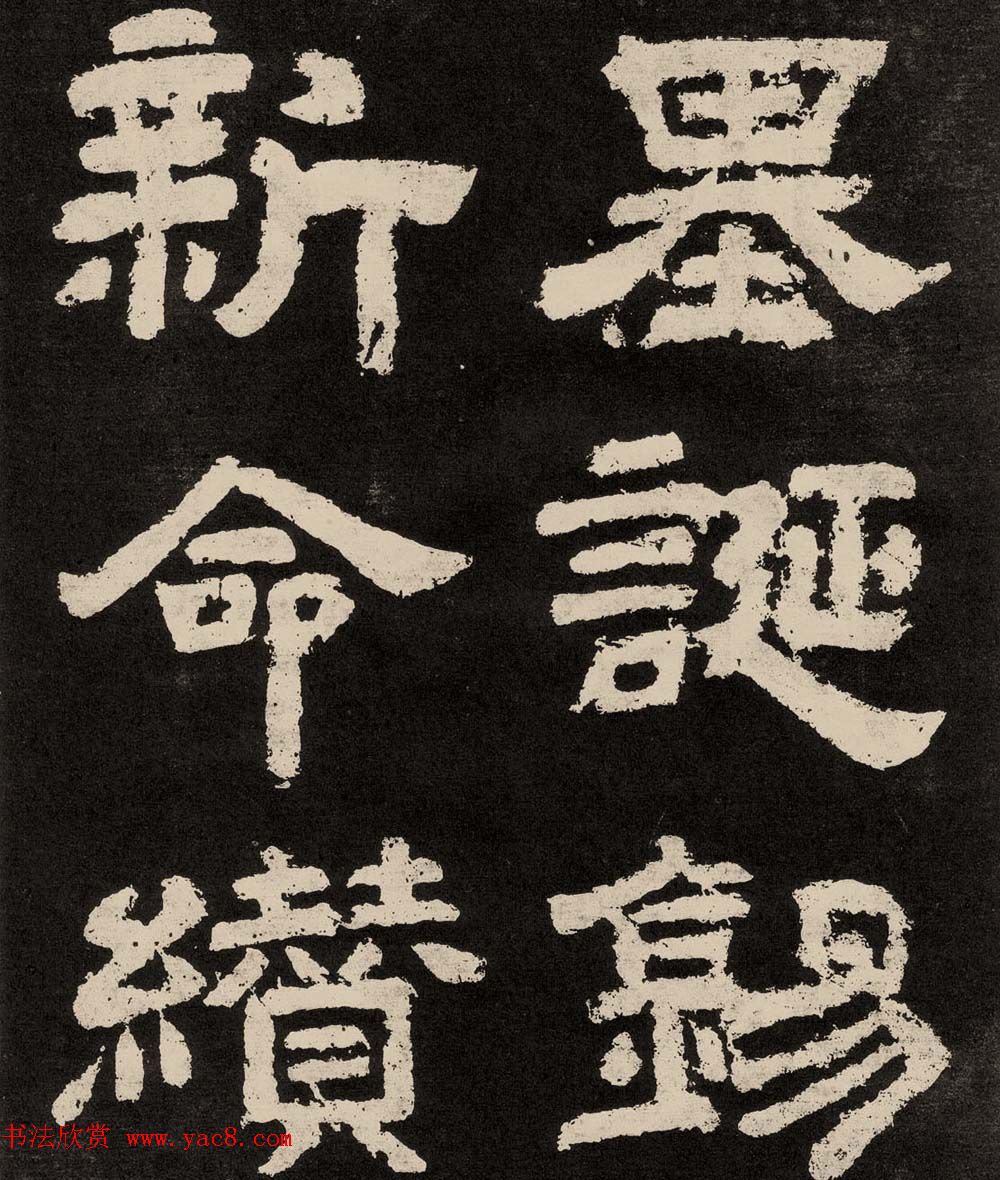 基誕錫
新命纘
书法欣赏 www.yac8.com